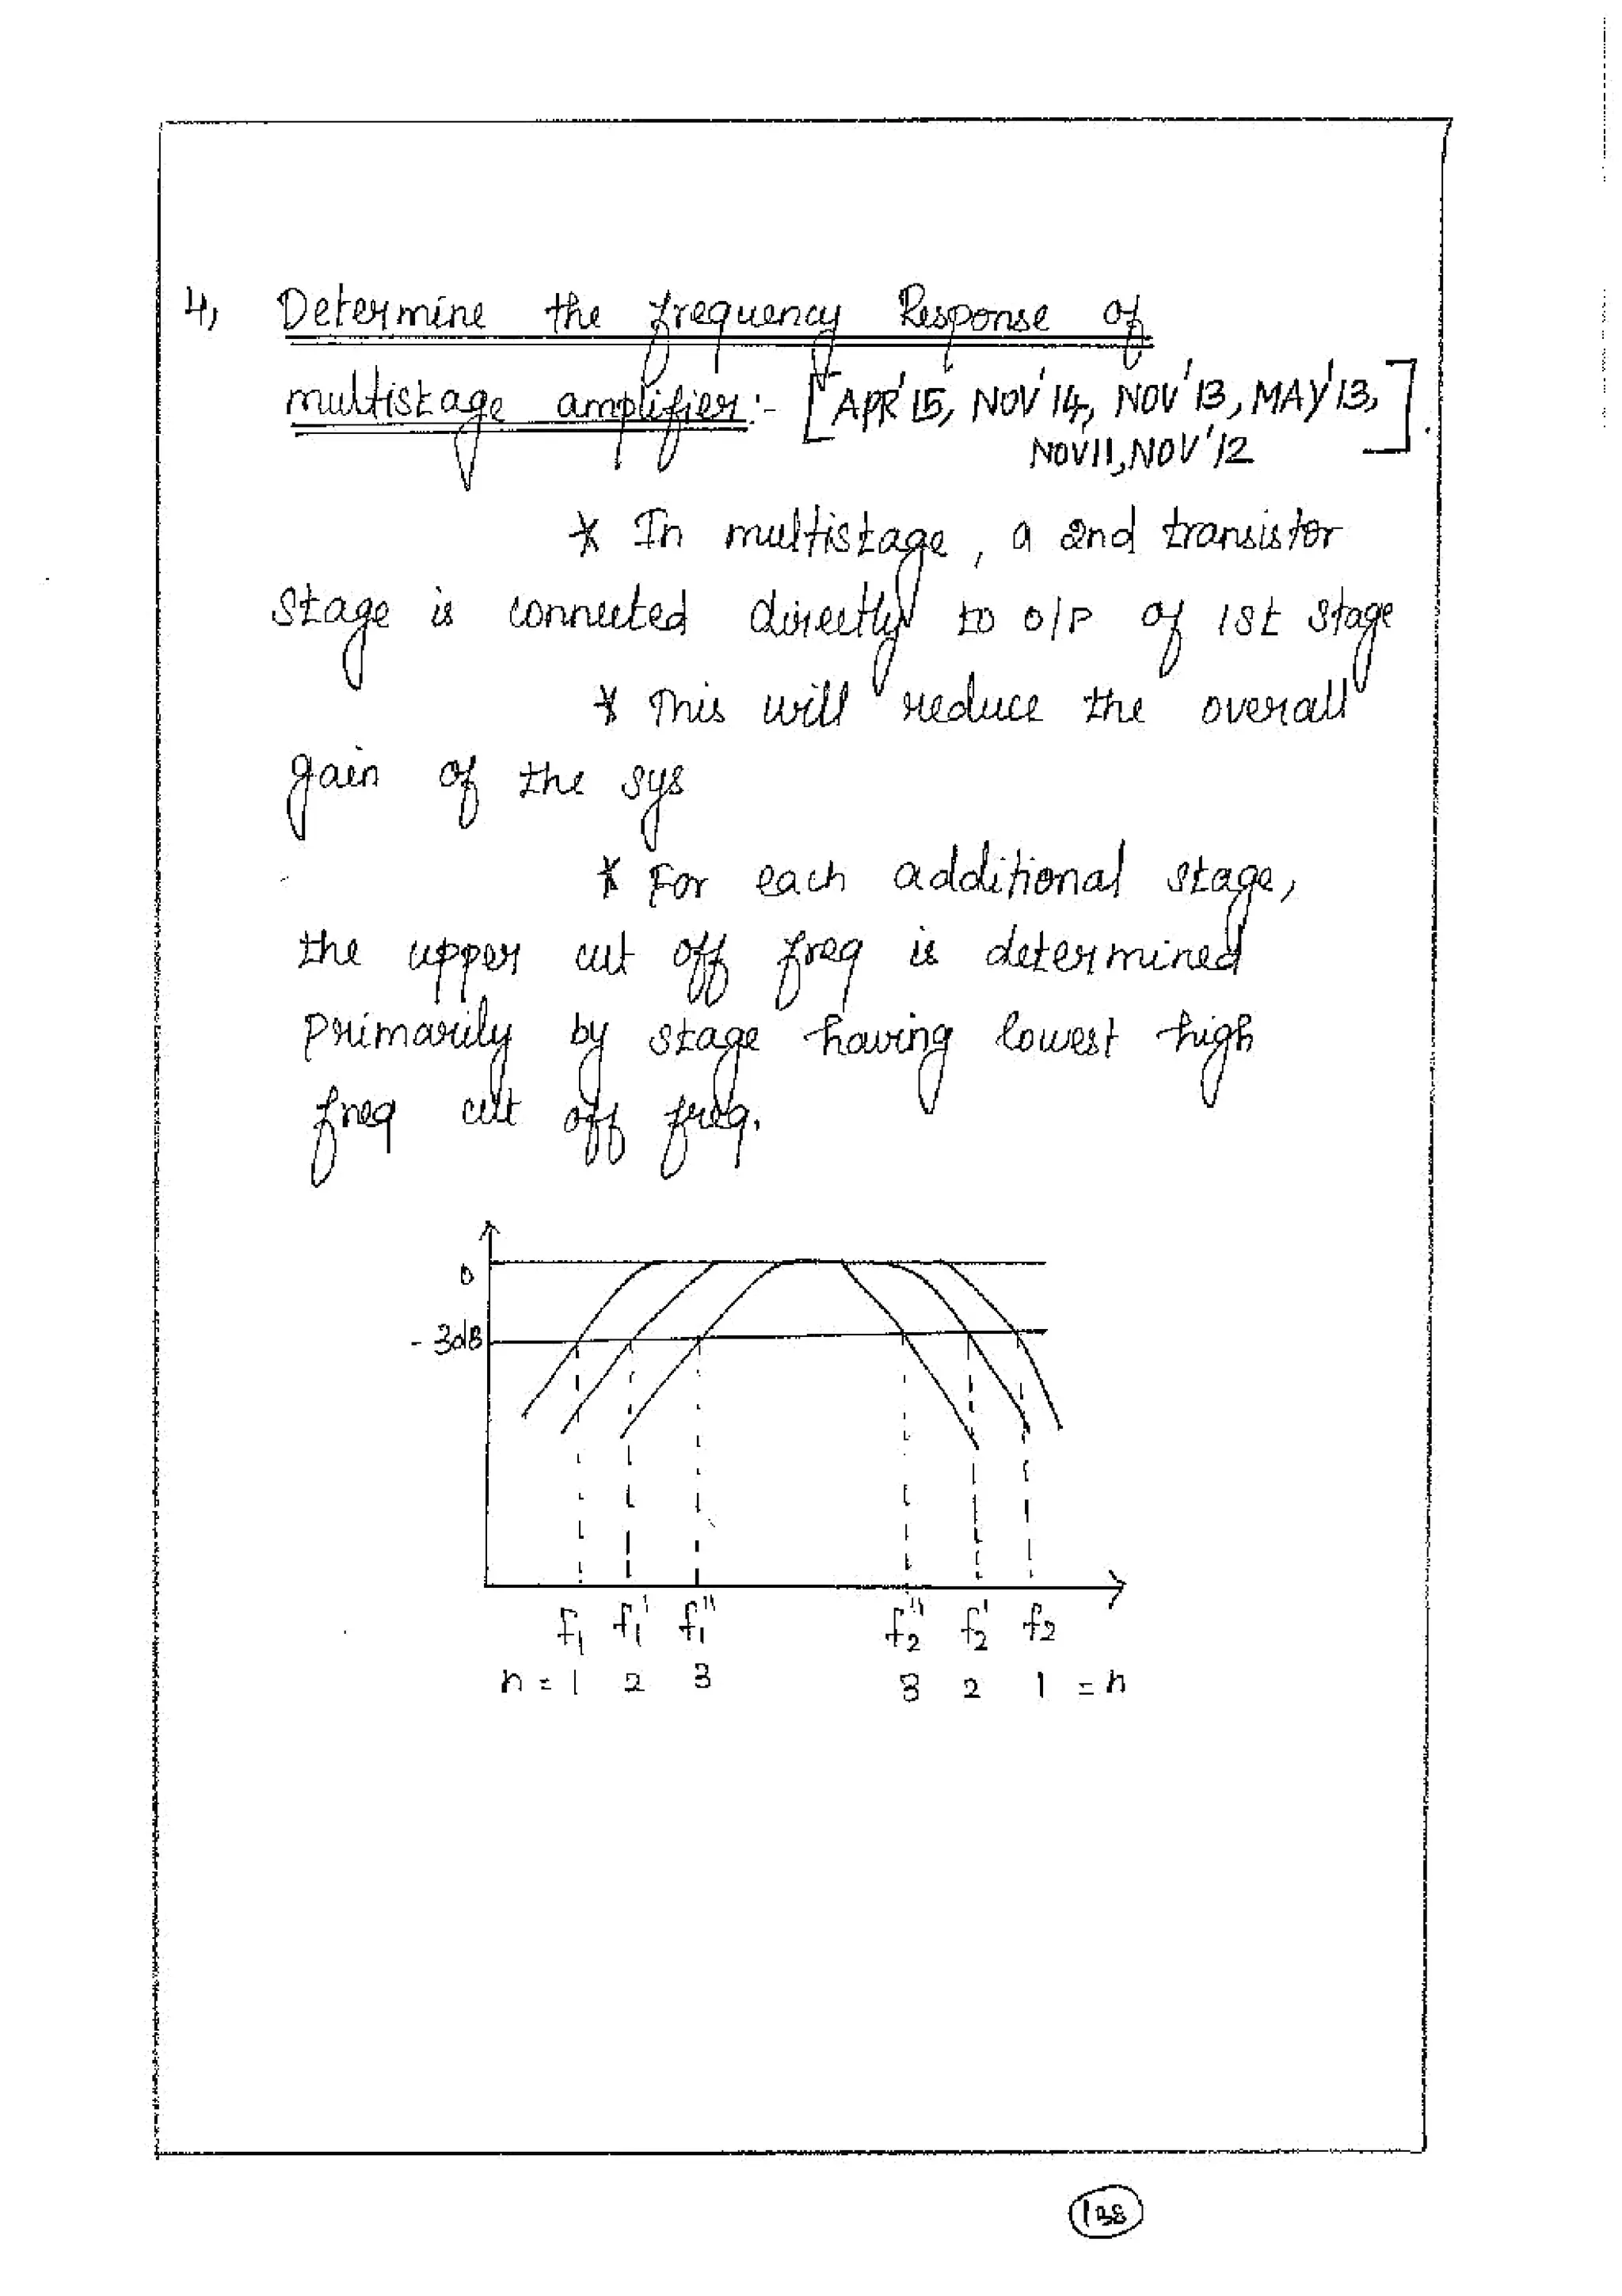 4, Determine the frequency Response of
multistage amplifier:- [APR'15, NOV'14, NOV'13, MAY'13,
NOV11, NOV'12].
* In multistage, a 2nd transistor
stage is connected directly to o/p of 1st stage
* This will reduce the overall
gain of the sys
* For each additional stage,
the upper cut off freq is determined
primarily by stage having lowest high
freq cut off freq.
0
- 3dB
f1 f1' f1'' f2'' f2' f2
n = 1 2 3 3 2 1 = n
138